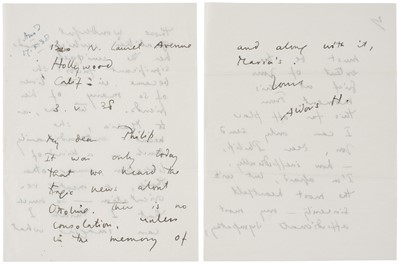 N. Laurel Avenue
Hollywood
Calif:
3. V. 38
My dear Philip
It was only today
that we heard the
tragic news about
There is no
consolation. unless
in the memory of
and along with it,
Maria's.
Yours
Aldous H.